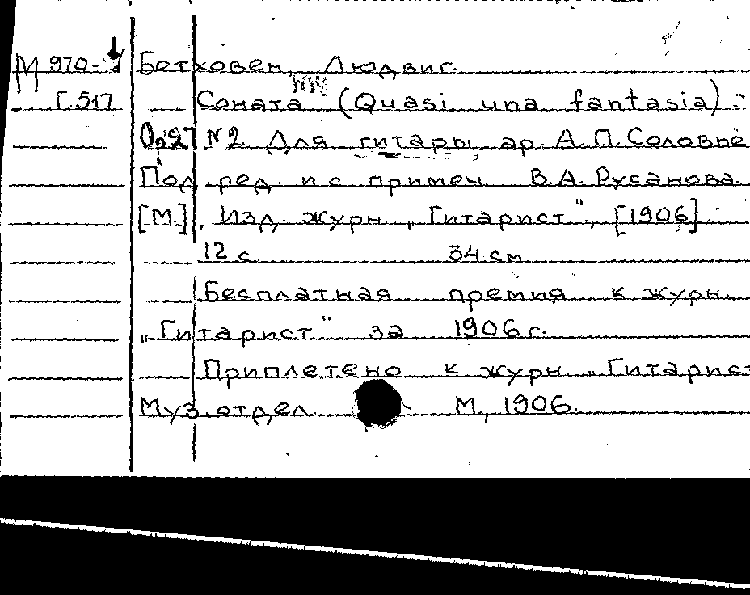 М 970- Бетховен, Людвиг.
Г.517 Соната (Quasi una fantasia).
Op.27 №2. Для гитары ар. А.П. Соловье
Под ред и с примеч В.А. Русанова.
[М.], Изд журн „Гитарист", [1906]
12 с 34 см
Бесплатная премия к журн.
„Гитарист" за 1906 г.
Приплетено к журн „Гитарист
Муз. отдел М., 1906.